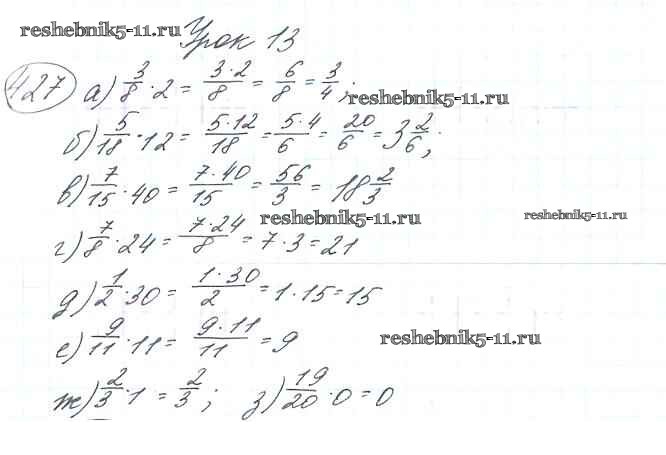 reshebnik5-11.ru
Урок 13
427 а) 3/8 · 2 = 3·2/8 = 6/8 = 3/4;
reshebnik5-11.ru
б) 5/18 · 12 = 5·12/18 = 5·4/6 = 20/6 = 3 2/6;
в) 7/15 · 40 = 7·40/15 = 56/3 = 18 2/3
reshebnik5-11.ru reshebnik5-11.ru
г) 7/8 · 24 = 7·24/8 = 7·3 = 21
д) 1/2 · 30 = 1·30/2 = 1·15 = 15
е) 9/11 · 11 = 9·11/11 = 9
reshebnik5-11.ru
ж) 2/3 · 1 = 2/3; з) 19/20 · 0 = 0